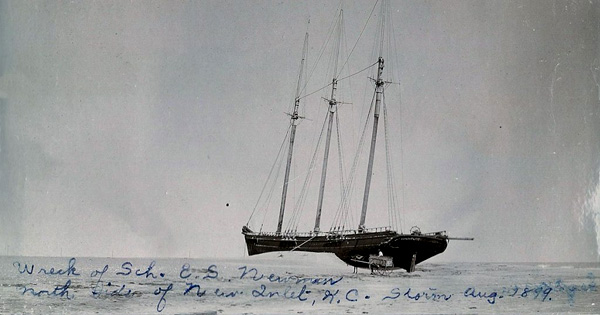 Wreck of Sch. E. S. Newman
North side of New Inlet, N.C. Storm Aug. 1899.